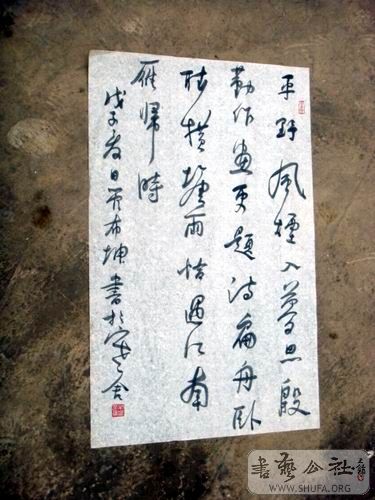 平野風煙入夢思殷
勤作畫更題詩扁舟臥
聽橫塘雨恰遇江南
雁歸時
戊子日布坤書於舍
書藝公社
WWW.SHUFA.ORG